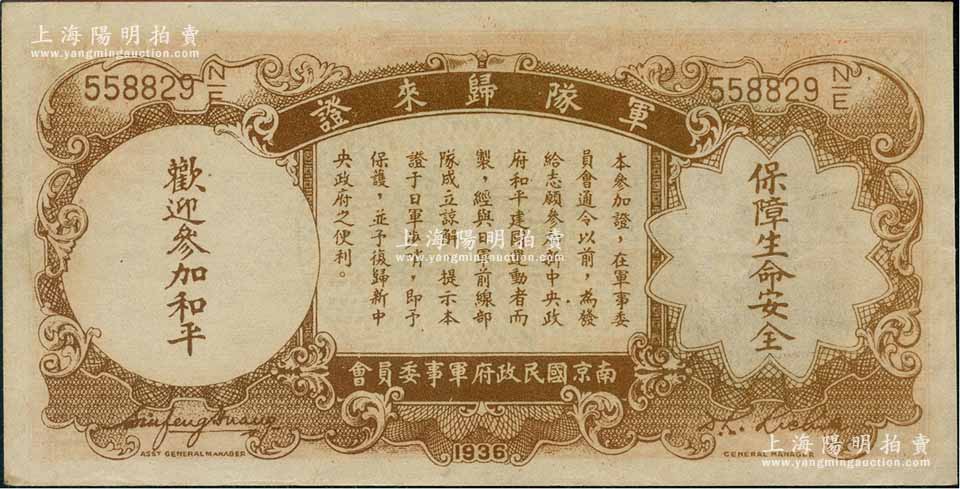 上海陽明拍賣
www.yangmingauction.com
上海陽明拍賣
www.yangmingauction.com
558829 N/E
558829 N/E
軍隊歸來證
保障生命安全
本參加證，在軍事委
員會通令以前，為發
給志願參加新中央政
府和平建國運動者而
製，經與日軍前線部
隊成立諒解，提示本
證于日軍步哨，即予
保護，並予復歸新中
央政府之便利。
歡迎參加和平
上海陽明拍賣
www.yangmingauction.com
南京國民政府軍事委員會
ASST GENERAL MANAGER
1936
GENERAL MANAGER
上海陽明拍賣
www.yangmingauction.com